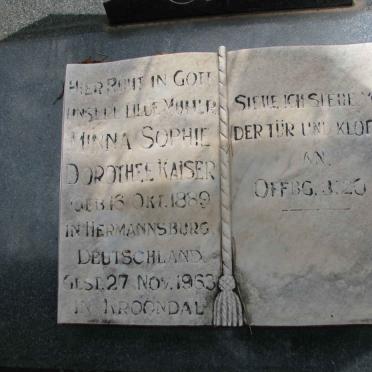 HIER RUHT IN GOTT
UNSERE LIEBE MUTTER
MINNA SOPHIE
DOROTHEE KAISER
GEB. 16 OKT. 1889
IN HERMANNSBURG
DEUTSCHLAND
GEST. 27 NOV. 1963
IN KROONDAL
SIEHE ICH STEHE
DER TÜR UND KLOP
AN.
OFFBG. 3:20